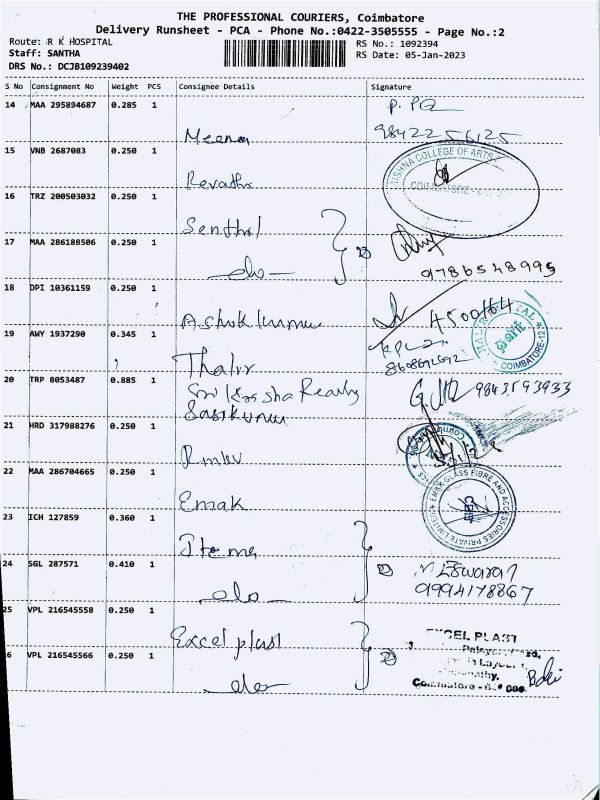 THE PROFESSIONAL COURIERS, Coimbatore
Delivery Runsheet - PCA - Phone No.:0422-3505555 - Page No.:2
Route: R K HOSPITAL
Staff: SANTHA
DRS No.: DCJB109239402
RS No.: 1092394
RS Date: 05-Jan-2023
S No Consignment No Weight PCS Consignee Details Signature
14 MAA 295894687 0.285 1
Meena
9842256125
15 VNB 2687083 0.250 1
Revathi
KRISHNA COLLEGE OF ARTS
COIMBATORE
16 TRZ 200503032 0.250 1
Senthil
17 MAA 286188506 0.250 1
do
9786548995
18 DPI 10361159 0.250 1
Ashok kumar
4500164
19 AWY 1937290 0.345 1
Thalir
COIMBATORE-12
20 TRP 8053487 0.885 1
Sri Krishna Ready
Sasikumar
9843593933
21 HRD 317988276 0.250 1
22 MAA 286704665 0.250 1
Emak
EMAK GLASS FIBRE AND ACCESSORIES PRIVATE LIMITED
23 ICH 127859 0.360 1
24 SGL 287571 0.410 1
do
Eswaran
9994178867
25 VPL 216545558 0.250 1
Excel plast
EXCEL PLAST
6 VPL 216545566 0.250 1
do
Coimbatore